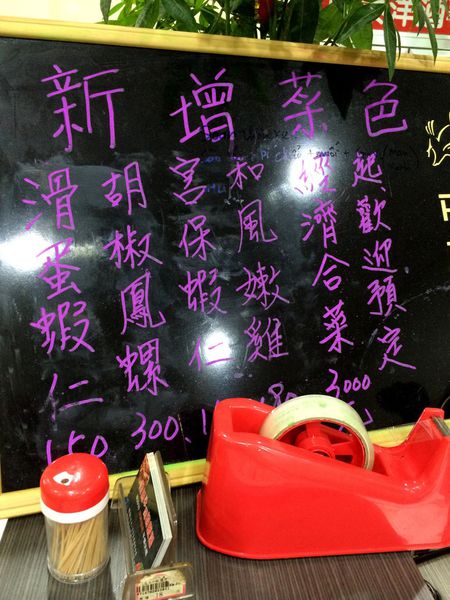 新增菜色
起、歡迎預定
經濟合菜 3000元
和風嫩雞 180
宮保蝦仁
胡椒鳳螺 300.
滑蛋蝦仁 150